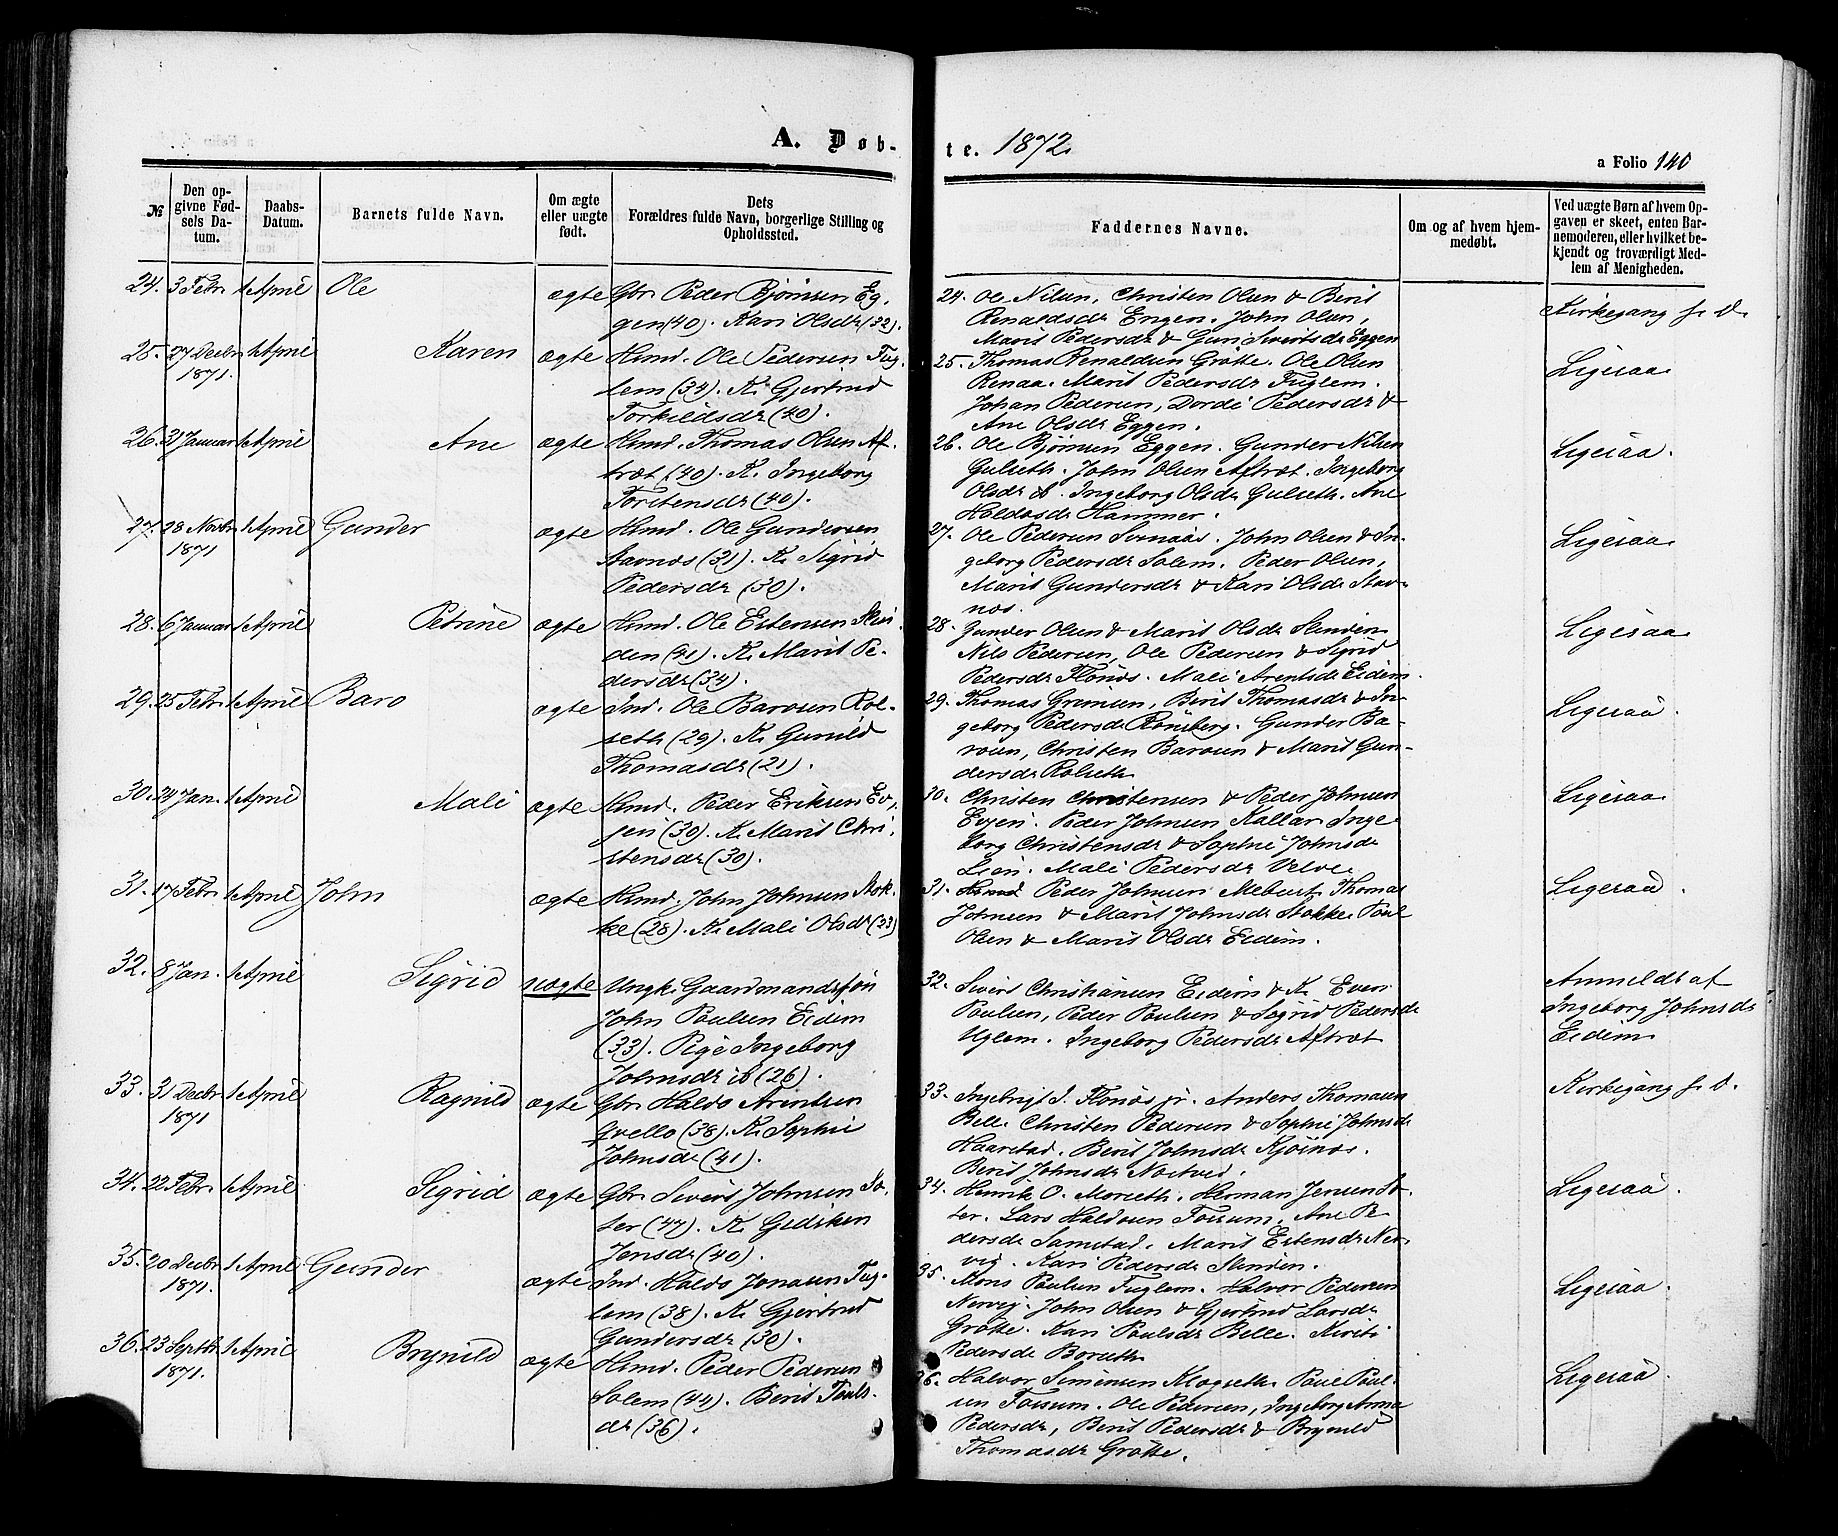 A. Døb-
te. 1872.
a Folio 140
№
Den op-
givne Fød-
sels Da-
tum.
Daabs-
Datum.
Barnets fulde Navn.
Om ægte
eller uægte
født.
Dets
Forældres fulde Navn, borgerlige Stilling og
Opholdssted.
Faddernes Navne.
Om og af hvem hjem-
medøbt.
Ved uægte Børn af hvem Op-
gaven er skeet, enten Bar-
nemoderen, eller hvilket be-
kjendt og troværdigt Med-
lem af Menigheden.
24. 3 Febr 1 April Ole ægte Gbr. Peder Bjørnsen Eg-
gen (40). Kari Olsdr (32).
24. Ole Nilsen, Christen Olsen & Berit
Renaldsdr Engen. John Olsen,
Marit Pedersdr & Guri Sivertsdr Eggen
Kirkegang s. D.
25. 27 Decbr 1 April Karen ægte Hmd. Ole Pedersen Fug-
1871.
lem (34). K. Gjertrud
Torkildsdr (40).
25. Thomas Renaldsen Grøtte. Ole Olsen
Renaa. Marit Pedersdr Fuglem.
Johan Pedersen, Dordi Pedersdr &
Ane Olsdr Eggen.
Ligesaa
26. 31 Januar 1 April Ane ægte Hmd. Thomas Olsen Af-
træt (40). K. Ingeborg
Torstensdr (40).
26. Ole Bjørnsen Eggen. Gunder Nilsen
Gulseth. John Olsen Aftræt. Ingeborg
Olsdr ib. Ingeborg Olsdr Gulseth. Ane
Haldosdr Hammer.
Ligesaa.
27. 28 Novbr 1 April Gunder ægte Hmd. Ole Gundersen
1871
Stavnos (31). K. Sigrid
Pedersdr (30).
27. Ole Pedersen Svenaas. John Olsen & In-
geborg Pedersdr Solem. Peder Olsen,
Marit Gundersdr & Kari Olsdr Stav-
nos.
Ligesaa
28. 6 Januar 1 April Petrine ægte Hmd. Ole Estensen Slin-
den (41). K. Marit Pe-
dersdr (34).
28. Gunder Olsen & Marit Olsdr Slinden
Nils Pedersen, Ole Pedersen & Sigrid
Pedersdr Flønes. Mali Arentsdr Eidem.
Ligesaa
29. 25 Febr 1 April Baro ægte Ind. Ole Barosen Rol-
seth (29). K. Gunild
Thomasdr (21).
29. Thomas Grimsen, Berit Thomasdr & In-
geborg Pedersdr Rønsberg. Gunder Ba-
rosen, Christen Barosen & Marit Gun-
dersdr Rolseth
Ligesaa.
30. 24 Jan. 1 April Mali ægte Hmd. Peder Eriksen Ev-
jen (30). K. Marit Chri-
stensdr (30).
30. Christen Christensen & Peder Johnsen
Evjen. Peder Johnsen Kallar Inge-
borg Christensdr & Sophie Johnsdr
Lien. Mali Pedersdr Velve
Ligesaa
31. 17 Febr 1 April John ægte Hmd. John Johnsen Stok-
ke (28). K. Mali Olsdr (23)
31. Peder Johnsen Mebust. Thomas
Johnsen & Marit Johnsdr Stokke. Poul
Olsen & Marit Olsdr Eidem.
Ligesaa.
32. 8 Jan. 1 April Sigrid uægte Ungk. Gaardmandssøn
John Paulsen Eidem
(33). Pige Ingeborg
Johnsdr ib (26).
32. Sivert Christiansen Eidem & K. Even
Paulsen, Peder Paulsen & Sigrid Pedersdr
Uglem. Ingeborg Pedersdr Aftræt
Anmeldt af
Ingeborg Johnsdr
Eidem
33. 31 Decbr 1 April Ragnild ægte Gbr. Haldo Arentsen
1871
Qvello (38). K. Sophie
Johnsdr (41).
33. Ingebrigt J. Flønes jr. Anders Thomasen
Belle. Christen Pedersen & Sophie Johnsdr
Haarstad. Berit Johnsdr Kjøsnos.
Berit Johnsdr Nostved.
Kirkegang s. D.
34. 22 Febr. 1 April Sigrid ægte Gbr. Sivert Johnsen Sø-
ter (47). K. Gidsken
Jensdr (40).
34. Henrik O. Morseth. Herman Jensen Sø-
ter. Lars Haldosen Fossum. Ane Pe-
dersdr Samstad. Marit Estensdr Ner-
vig. Kari Pedersdr Slinden.
Ligesaa.
35. 20 Decbr 1 April Gunder ægte Ind. Haldo Jonasen Fug-
1871.
lem (38). K. Gjertrud
Gundersdr (30).
35. Mons Paulsen Fuglem. Halvor Pedersen
Nervej. John Olsen & Gjertrud Larsdr
Grøtte. Kari Paulsdr Belle. Kirsti
Pedersdr Borseth
Ligesaa.
36. 23 Septbr 1 April Brynild ægte Hmd. Peder Pedersen
1871.
Solem (44). Berit Pauls-
dr (36).
36. Halvor Simensen Mogseth. Paul Paul-
sen Fossum. Ole Pedersen, Ingeborg Anna
Pedersdr, Berit Pedersdr & Brynild
Thomasdr Grøtte.
Ligesaa.